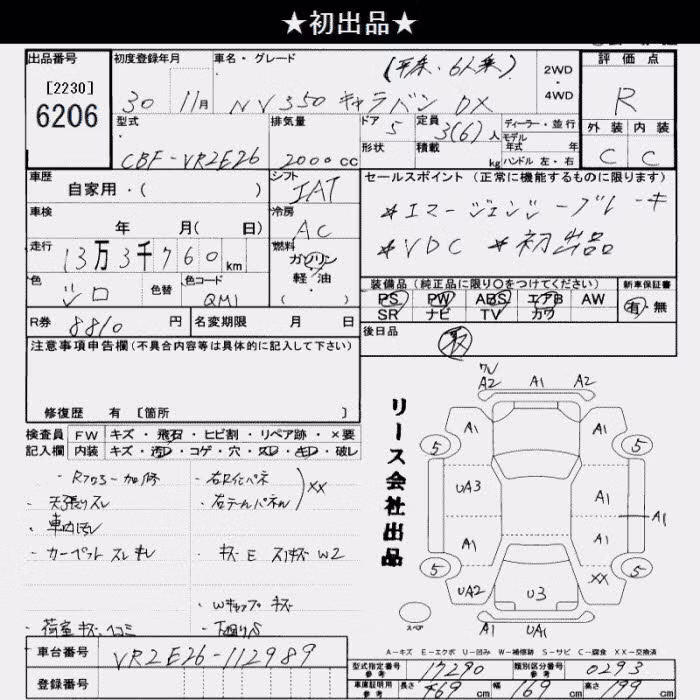 ★初出品★
出品番号 初度登録年月 車名・グレード (平床・6人乗) 2WD 評価点
[2230]
6206
30 11月 NV350 キャラバン DX 4WD R
型式 排気量 ドア 5 定員 3(6)人 ディーラー・並行 外装 内装
モデル年式 年式
CBF-VR2E26 2000cc 形状 積載 kg ハンドル 左・右 C C
車歴 シフト セールスポイント(正常に機能するものに限ります)
自家用・( ) IAT
車検 冷房 *エマージェンジーブレーキ
年 月( 日) AC
走行 燃料 *VDC *初出品
13万3千760km ガソリン
軽・油
色 色替 色コード 装備品(純正品に限り○をつけてください) 新車保証書
シロ QM1 ( ) PS PW ABS エアB AW 有・無
SR ナビ TV カワ
R券 8810 円 名変期限 月 日 後日品
注意事項申告欄(不具合内容等は具体的に記入して下さい)
修復歴 有 [箇所 ]
検査員 FW キズ・飛石・ヒビ割・リペア跡・×要
記入欄 内装 キズ・汚レ・コゲ・穴・スレ・キレ・破レ
・Rフロアー加修 ・右Rピパネ
・天張りスレ ・右テールパネル XX
・車内汚レ
・カーペットスレキレ ・キズE スリキズW2
・Wキャップキズ
・荷室キズ、ヘコミ ・下廻りS
リース会社出品
ワレ
A2 A1 A2
A1 A1
5 5
UA3 A1
A1
A1 A1
5 5
UA2 U3 XX
スペア
A1 UA1
A-キズ E-エクボ U-凹み W-補修跡 S-サビ C-腐食 XX-交換済
車台番号 VR2E26-112989
型式指定番号 参考 17290 類別区分番号 参考 0293
登録番号
車庫証明用 参考 長さ 469 cm 幅 169 cm 高さ 199 cm